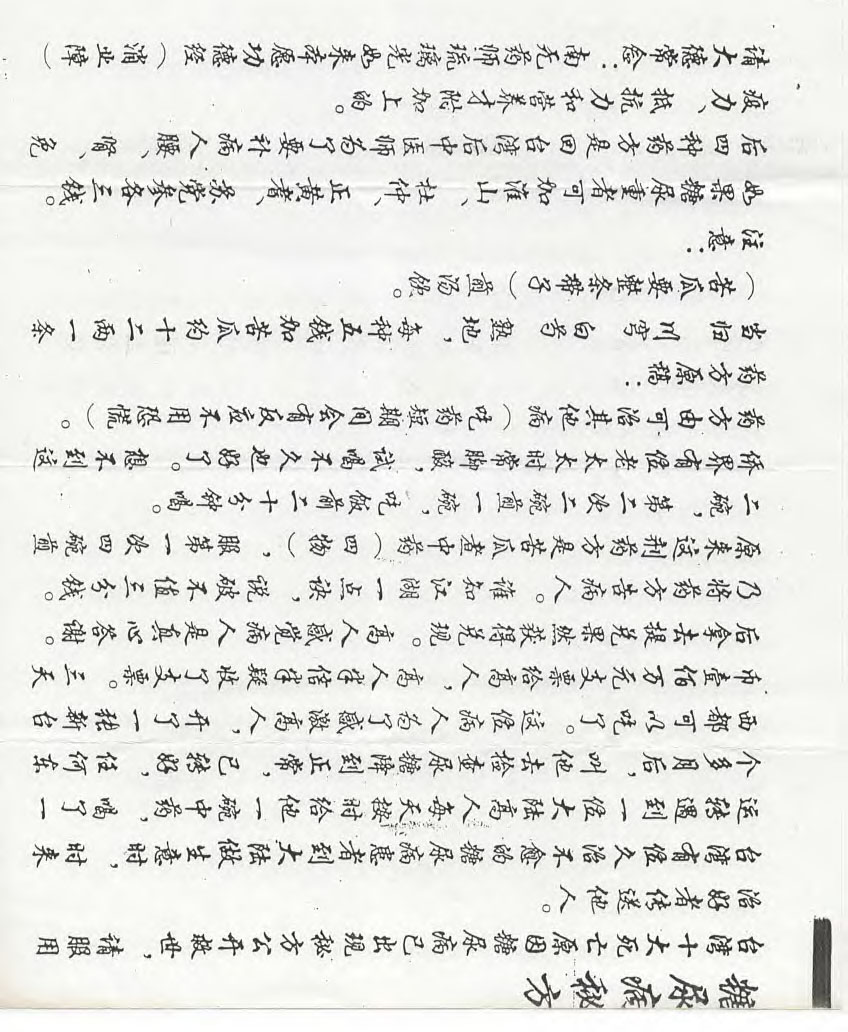 糖尿病秘方
台湾十大死亡原因糖尿病已出现秘方公开救世，请服用
治好者传送他人。
台湾有位久治不愈的糖尿病患者到大陆做生意时，时来
运转遇到一位大陆高人每天按时给他一碗中药，喝了一
个多月后，叫他去检查尿糖降到正常，已转好，任何东
西都可以吃了。这位病人为了感激高人，开了一张新台
币壹佰万元支票给高人，高人伴信伴疑收了支票。三天
后拿去提兑果然获得兑现。高人感觉病人是真心答谢。
乃将药方告病人。谁知江湖一点诀，说破不值三分钱。
原来这剂药方是苦瓜煮中药（四物），服第一次四碗煎
二碗，第二次二碗煎一碗，吃饭前二十分钟喝。
侨界有位老太太时常脚酸，试喝不久也好了。想不到这
药方由可治其他病（吃药短期间会有反应不用恐慌）。
药方原稿：
当归 川芎 白芍 熟地，每种五钱加苦瓜约十二两一条
（苦瓜要整条带子）煎汤饮。
注意：
如果糖尿重者可加淮山、杜仲、正黄耆、苏党参各三钱。
后四种药方是回台湾后中医师为了要补病人腰、肾、免
疫力、抵抗力和营养才附加上的。
请大德常念：南无药师琉璃光如来本愿功德经（消业障）